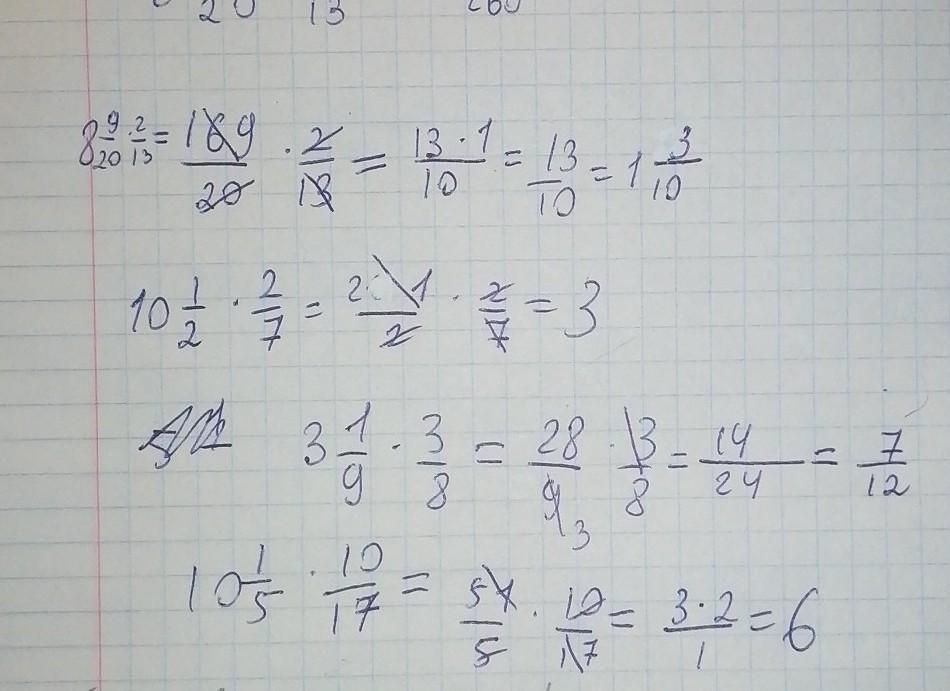 20 13 260
8 9/20 · 2/13 = 169/20 · 2/13 = 13 · 1/10 = 13/10 = 1 3/10
10 1/2 · 2/7 = 21/2 · 2/7 = 3
3 1/9 · 3/8 = 28/9 3 · 3/8 = 14/24 = 7/12
10 1/5 · 10/17 = 51/5 · 10/17 = 3 · 2/1 = 6